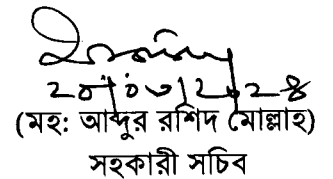 ২০/০৩/২০২৪
(মহ: আব্দুর রশিদ মোল্লাহ)
সহকারী সচিব